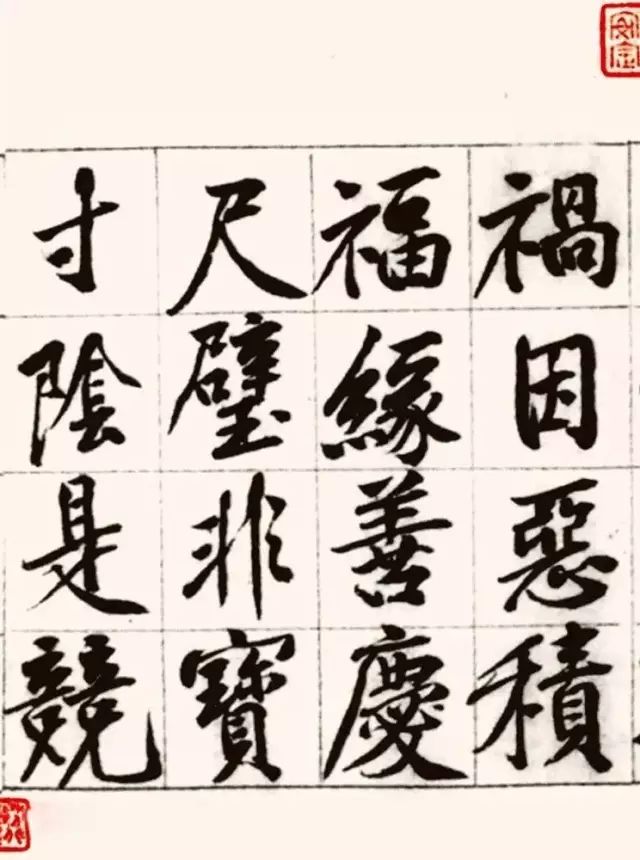 禍因惡積
福緣善慶
尺璧非寶
寸陰是競